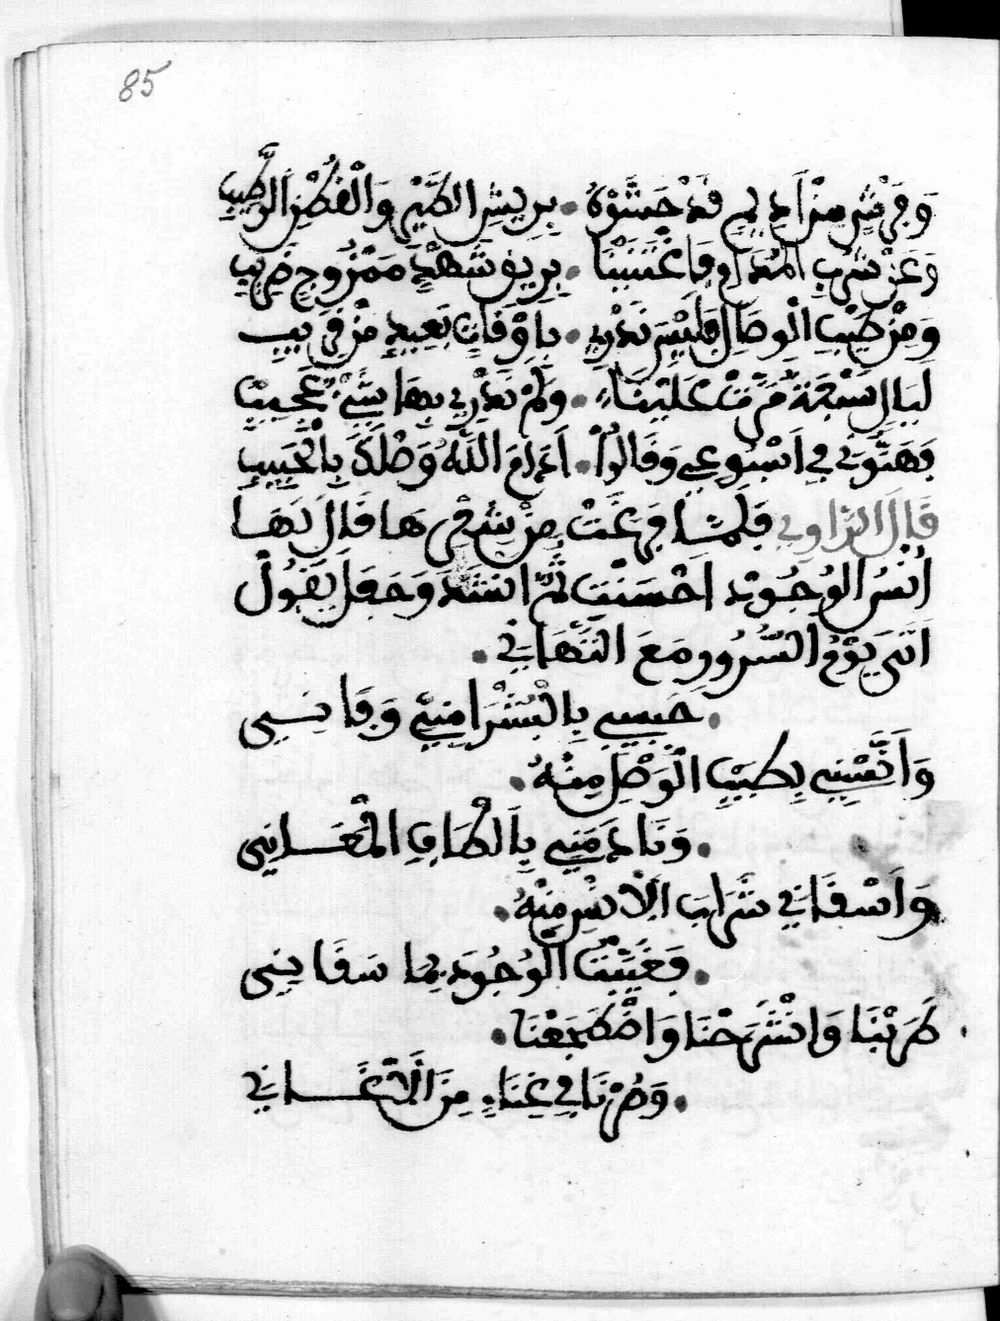 85
وَفَرْشٍ مِنْ اَدِيمٍ قَدْ حَشَوْهُ . بِرِيشِ الطَّيْرِ وَالْقُطْنِ الرَّطِيبِ
وَعَنْ شُرْبِ الْمُدَامِ فَاغْتَنَيْنَا . بِرِيقٍ شَهْدٍ مَمْزُوجٍ ضَرِيبِ
وَمِنْ طِيبِ الْوِصَالِ فَلَيْسَ نَدْرِي . بِاَوْقَاتٍ بَعِيدٍ مِنْ قَرِيبِ
لَيَالٍ سَبْعَةٌ مَرَّتْ عَلَيْنَا . وَلَمْ نَدْرِي بِهَا شَيْءٌ عَجِيبٌ
فَهَنَّوْنِي فِي اُسْبُوعِي وَقَالُواْ . اَدَامَ اللَّهُ وَصْلَكَ بِالْحَبِيبِ
قَالَ الرَّاوِي فَلَمَّا فَرَغَتْ مِنْ شِعْرِهَا قَالَ لَهَا
اُنْسُ الْوُجُودِ اَحْسَنْتِ ثُمَّ انْشَدَ وَجَعَلَ يَقُولُ
اَتَى يَوْمُ السُّرُورِ مَعَ التَّهَانِي .
. حَبِيبِي بِالْبُشْرَا مِنِّي وَفَانِي
وَاَنَّسَنِي بِطِيبِ الْوَصْلِ مِنْهُ .
. وَنَادَمَنِي بِاَلْطَافِ الْمَعَانِي
وَاَسْقَانِي شَرَابَ الْاُنْسِ مِنْهُ .
. فَغَيَّبْتُ الْوُجُودَ بِمَا سَقَانِي
طَرِبْنَا وَانْشَرَحْنَا وَاضْطَجَعْنَا .
. وَصِرْنَا فِي غِنَاءٍ مِنَ الْاَغَانِي